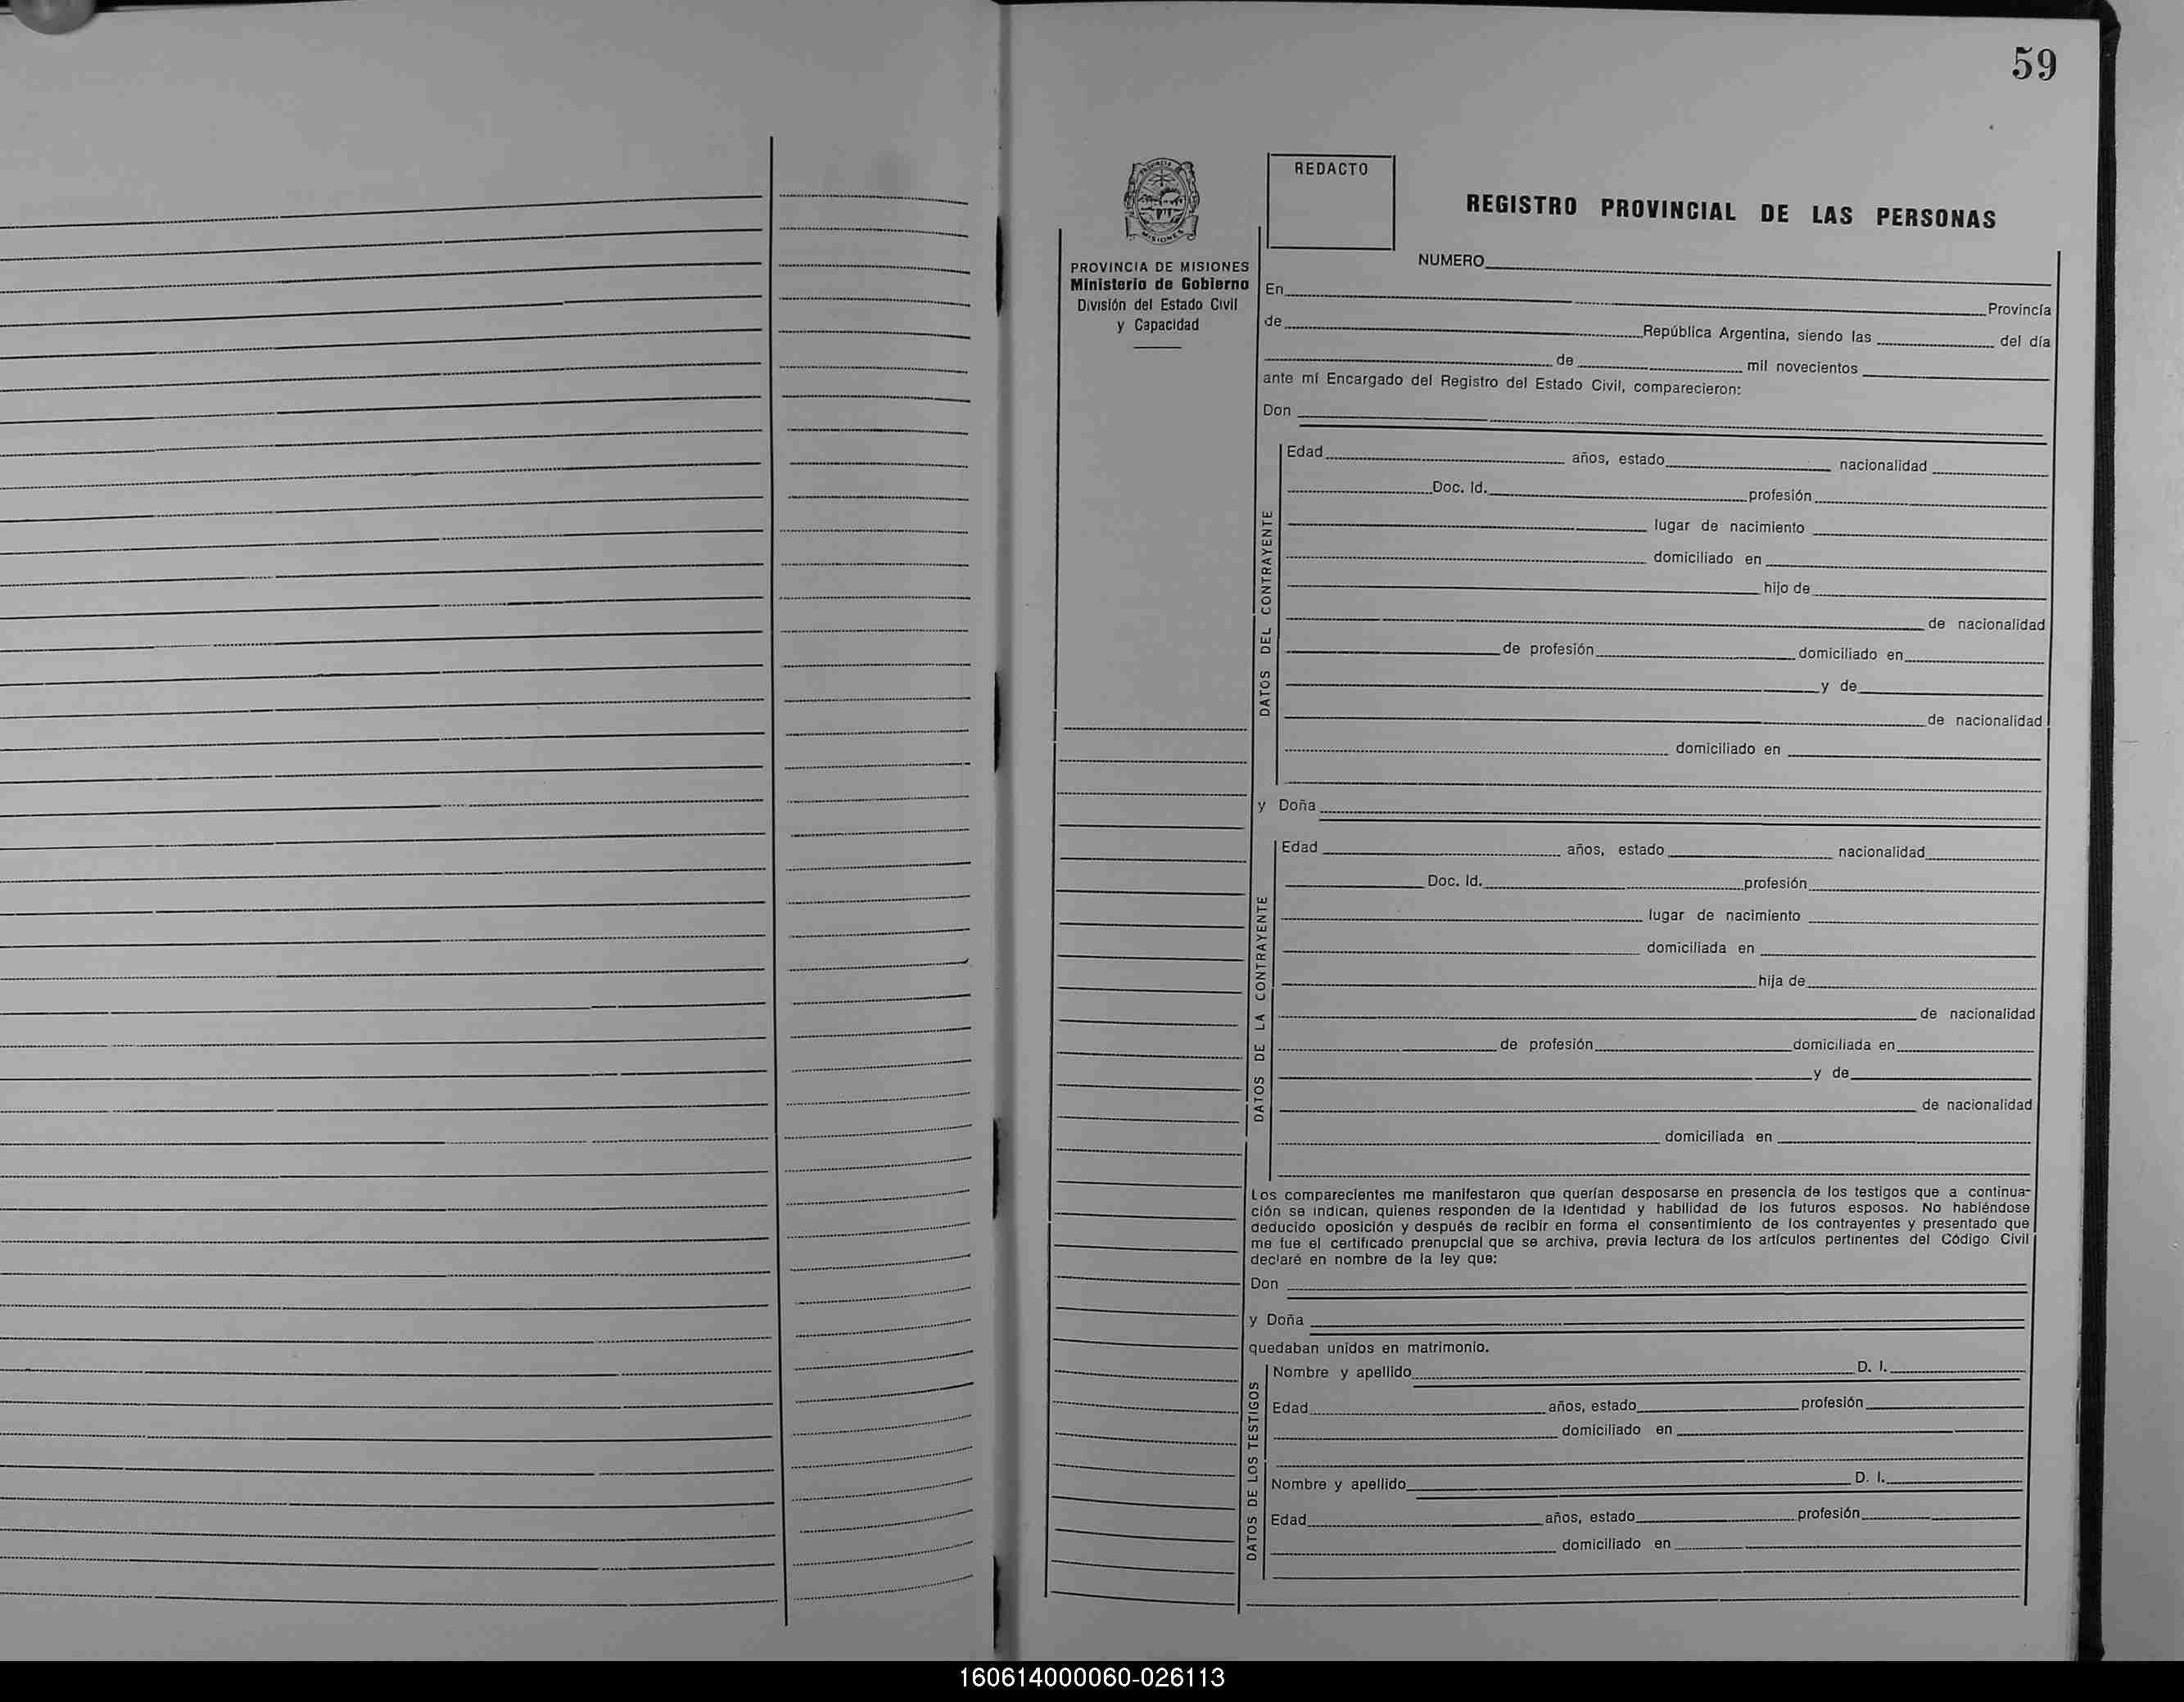 59
PROVINCIA
MISIONES
REDACTO
REGISTRO PROVINCIAL DE LAS PERSONAS
PROVINCIA DE MISIONES
Ministerio de Gobierno
División del Estado Civil
y Capacidad
NUMERO
En Provincia
de República Argentina, siendo las del día
de mil novecientos
ante mí Encargado del Registro del Estado Civil, comparecieron:
Don
DATOS DEL CONTRAYENTE
Edad años, estado nacionalidad
Doc. Id. profesión
lugar de nacimiento
domiciliado en
hijo de
de nacionalidad
de profesión domiciliado en
y de
de nacionalidad
domiciliado en
y Doña
DATOS DE LA CONTRAYENTE
Edad años, estado nacionalidad
Doc. Id. profesión
lugar de nacimiento
domiciliada en
hija de
de nacionalidad
de profesión domiciliada en
y de
de nacionalidad
domiciliada en
Los comparecientes me manifestaron que querían desposarse en presencia de los testigos que a continua-
ción se indican, quienes responden de la identidad y habilidad de los futuros esposos. No habiéndose
deducido oposición y después de recibir en forma el consentimiento de los contrayentes y presentado que
me fue el certificado prenupcial que se archiva, previa lectura de los artículos pertinentes del Código Civil
declaré en nombre de la ley que:
Don
y Doña
quedaban unidos en matrimonio.
DATOS DE LOS TESTIGOS
Nombre y apellido D. I.
Edad años, estado profesión
domiciliado en
Nombre y apellido D. I.
Edad años, estado profesión
domiciliado en
160614000060-026113